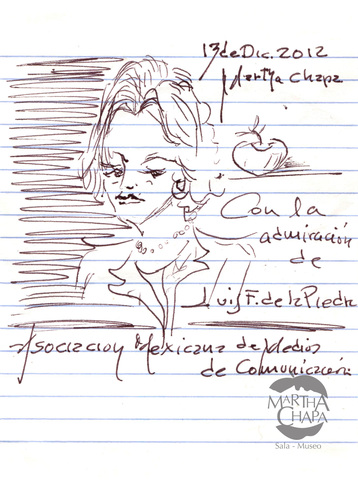 13 de Dic. 2012
Martha Chapa
Con la
admiración
de
Luis F. de la Piedra
Asociacion Mexicana de Medios
de Comunicación
MARTHA
CHAPA
Sala - Museo